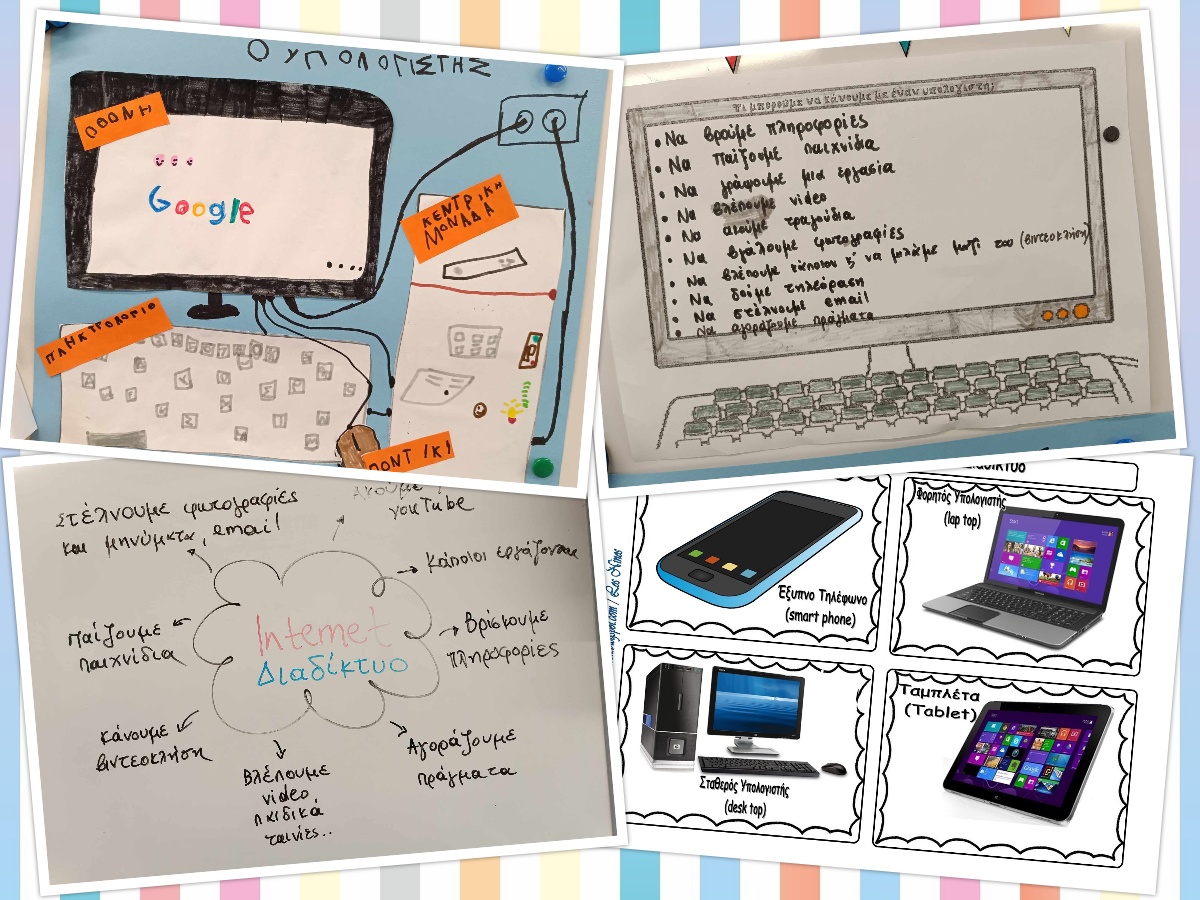 Ο ΥΠΟΛΟΓΙΣΤΗΣ
ΟΘΟΝΗ
Google
ΚΕΝΤΡΙΚΗ
ΜΟΝΑΔΑ
ΠΛΗΚΤΡΟΛΟΓΙΟ
ΠΟΝΤΙΚΙ
Τι μπορούμε να κάνουμε με έναν υπολογιστή;
• Να βρούμε πληροφορίες
• Να παίζουμε παιχνίδια
• Να γράφουμε μια εργασία
• Να βλέπουμε video
• Να ακούμε τραγούδια
• Να βγάλουμε φωτογραφίες
• Να βλέπουμε κάποιον & να μιλάμε μαζί του (βιντεοκλήση)
• Να δούμε τηλεόραση
• Να στέλνουμε email
• Να αγοράζουμε πράγματα
Στέλνουμε φωτογραφίες
και μηνύματα, email
Ακούμε
youtube
Κάποιοι εργάζονται
Βρίσκουμε
πληροφορίες
Αγοράζουμε
πράγματα
Βλέπουμε
video
παιδικά
ταινίες..
κάνουμε
βιντεοκλήση
παίζουμε
παιχνίδια
Internet
Διαδίκτυο
Έξυπνο Τηλέφωνο
(smart phone)
Φορητός Υπολογιστής
(lap top)
Σταθερός Υπολογιστής
(desk top)
Ταμπλέτα
(Tablet)